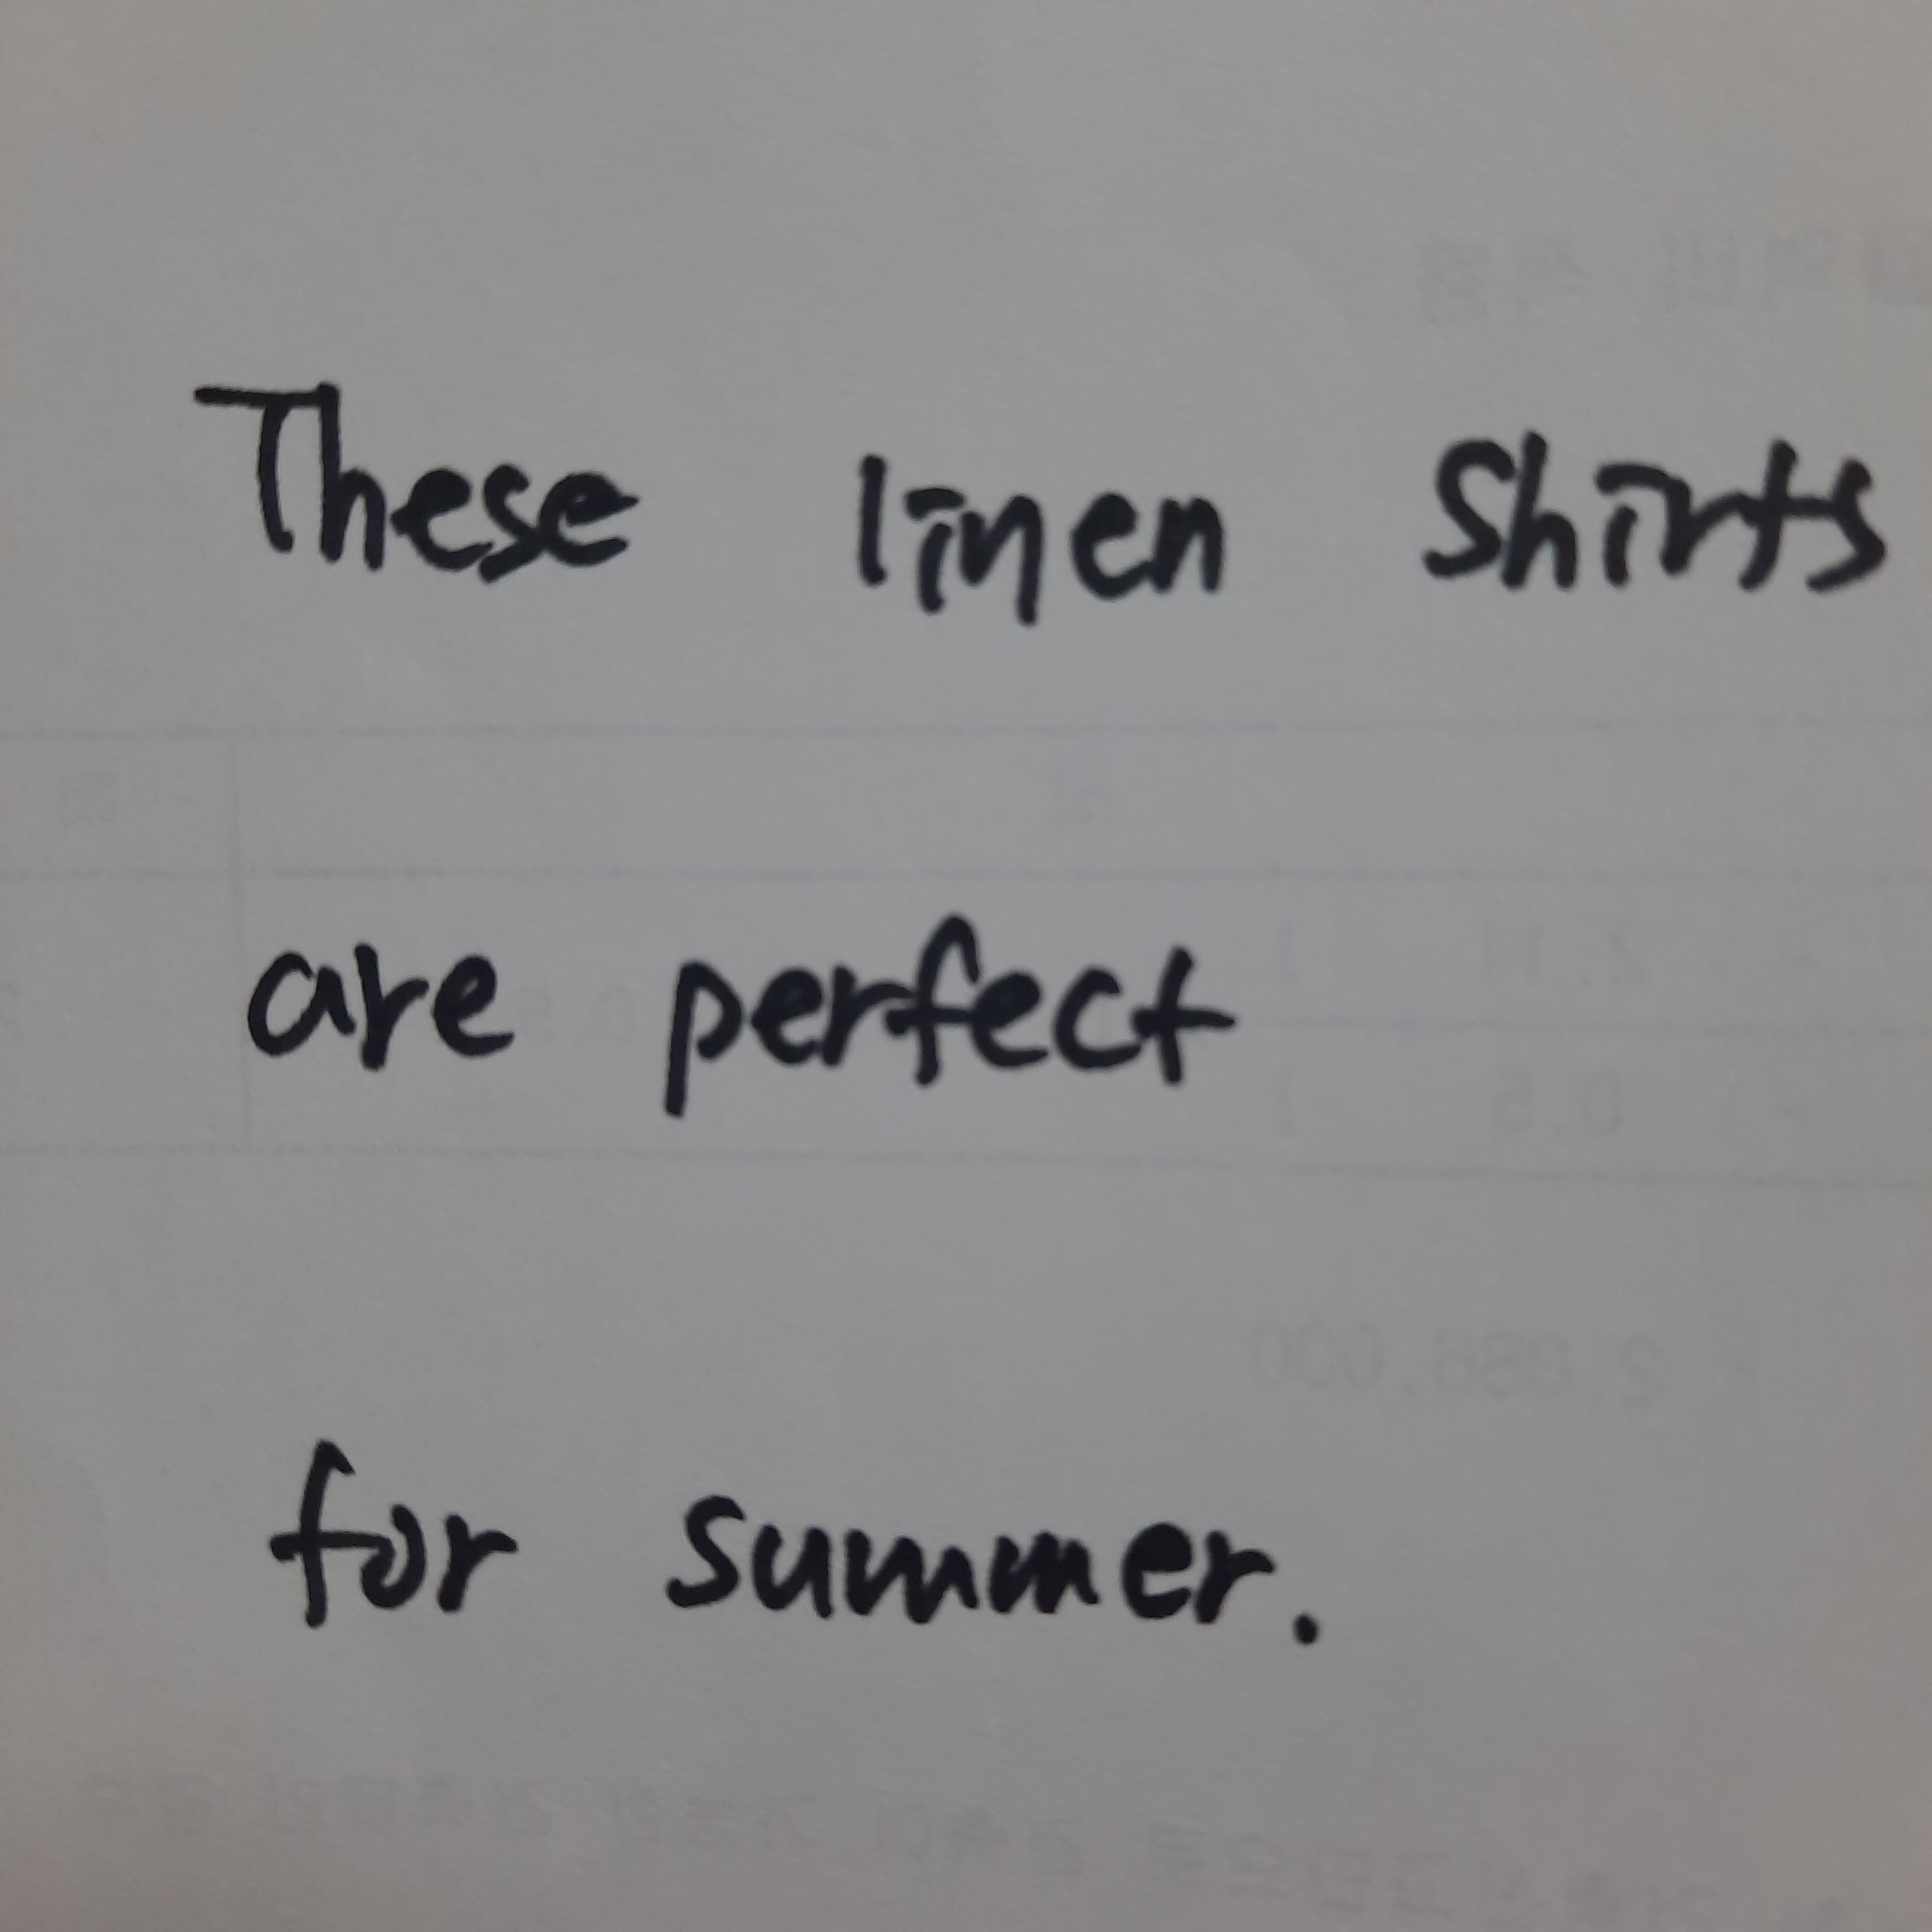 These linen shirts
are perfect
for summer.